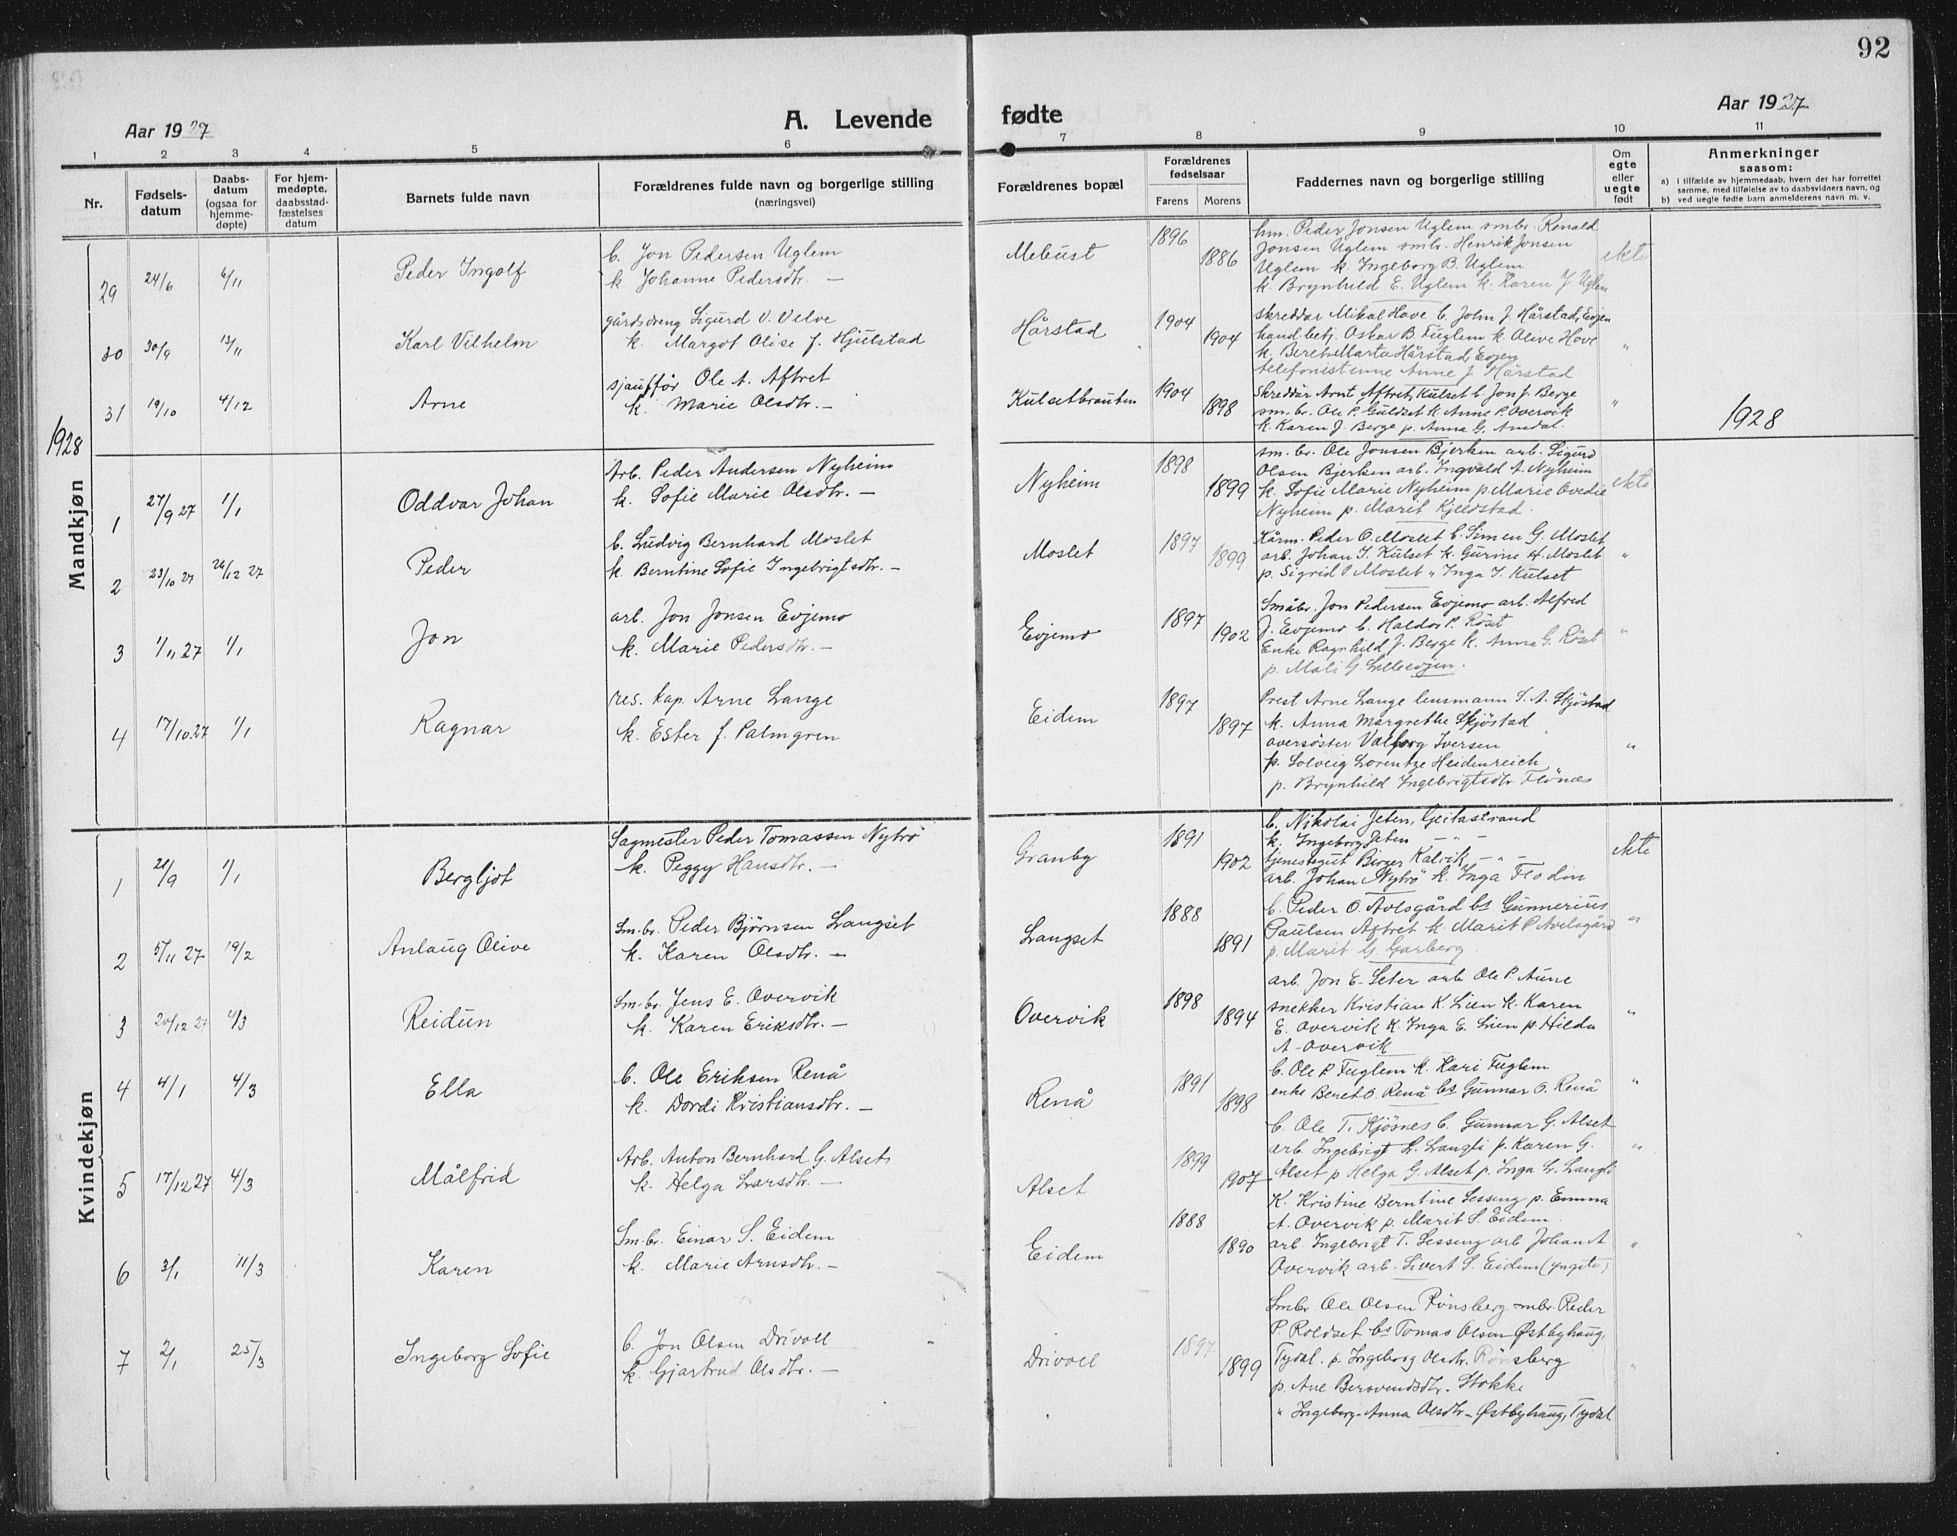 92
Aar 1927
A. Levende
fødte
Aar 1927
1 2 3 4 5 6 7 8 9 10 11
Nr.
Fødsels-
datum
Daabs-
datum
(ogsaa for
hjemme-
døpte)
For hjem-
medøpte,
daabsstad-
fæstelses
datum
Barnets fulde navn
Forældrenes fulde navn og borgerlige stilling
(næringsvei)
Forældrenes bopæl
Forældrenes
fødselsaar
Farens Morens
Faddernes navn og borgerlige stilling
Om
egte
eller
uegte
født
Anmerkninger
saasom:
a) i tilfælde av hjemmedaab, hvem der har forrettet
samme, med tilføielse av to daabsvidners navn, og
b) ved uegte fødte barn anmelderens navn m. v.
29 24/6 6/11 Peder Ingolf
b. Jon Pedersen Uglem
k. Johanne Pedersdtr. —
Mebust 1896 1886
hm. Peder Jonsen Uglem smbr. Renald
Jonsen Uglem smbr. Henrik Jonsen
Uglem k. Ingeborg B. Uglem
k. Brynhild E. Uglem k. Karen J. Uglem
ekte
30 30/9 13/11 Karl Vilhelm
gårdsdreng Sigurd V. Velve
k. Margot Olise f. Hjulstad
Hårstad 1904 1904
skreddar Mikal Hove b. John J. Hårstad, Evjen
handl.betj. Oskar B. Fuglem k. Olive Hove
k. Beret Marta Hårstad, Evjen
telefonistinne Anne J. Hårstad
"
31 19/10 4/12 Arne
sjauffør Ole A. Aftret
k. Marie Olsdtr. —
Kulsetbrauten 1904 1898
Skreddar Arnt Aftret, Kulset b. Jon J. Berge
sm. br. Ole P. Guldset k. Anne P. Overvik
k. Karen J. Berge p. Anna G. Amdal.
"
1928
1928
Mandkjøn
1 27/9 27 1/1 Oddvar Johan
Arb. Peder Andersen Nyheim
k. Sofie Marie Olsdtr. —
Nyheim 1898 1899
sm. br. Ole Jonsen Bjerken arb. Sigurd
Olsen Bjerken arb. Ingvald A. Nyheim
k. Sofie Marie Nyheim p. Marie Ovedie
Nyheim p. Marit Kjeldstad.
ekte
2 23/10 27 26/12 27 Peder
b. Ludvig Bernhard Moslet
k. Berntine Sofie Ingebrigtsdtr. —
Moslet 1897 1899
Kårm. Peder O. Moslet b. Simen G. Moslet
arb. Johan I. Kulset k. Gurine H. Moslet
p. Sigrid P. Moslet " Inga I. Kulset
"
3 1/11 27 1/1 Jon
arb. Jon Jonsen Evjemo
k. Marie Pedersdtr. —
Evjemo 1897 1902
Småbr. Jon Pedersen Evjemo arb. Alfred
J. Evjemo b. Haldor P. Röset
Enke Ragnhild J. Berge k. Anna G. Röset
p. Mali G. Lilleevjen.
"
4 17/10 27 1/1 Ragnar
res. kap. Arne Lange
k. Ester f. Palmgren
Eidem 1897 1897
Prest Arne Lange lensmann S. A. Skjöstad
k. Anna Margrethe Skjöstad
oversöster Valborg Iversen
p. Solveig Lorentze Heidenreich
p. Brynhild Ingebrigtsdtr. Flönes
"
Kvindekjøn
1 21/9 1/1 Bergljot
Sagmester Peder Tomassen Nytrö
k. Peggy Hansdtr. —
Granby 1891 1902
b. Nikolai Jeten, Geitastrand
k. Ingeborg Jeten — " —
tjenestegut Birger Kalvik — " —
arb. Johan Nytrö k. Inga Flodin
ekte
2 5/11 27 19/2 Anlaug Olive
Sm.br. Peder Bjørnsen Langset
k. Karen Olsdtr. —
Langset 1888 1891
b. Peder O. Avlsgård bs Gunnerius
Paulsen Aftret k. Marit P. Avelsgård
p. Marit G. Garberg.
"
3 20/12 27 4/3 Reidun
Sm.br. Jens E. Overvik
k. Karen Eriksdtr. —
Overvik 1898 1894
arb. Jon E. Seter arb. Ole P. Aune
snekker Kristian K. Lien k. Karen
E. Overvik k. Inga E. Lien p. Hilda
A. Overvik
"
4 4/1 4/3 Ella
b. Ole Eriksen Renå
k. Dordi Kristiansdtr. —
Renå 1891 1898
b. Ole P. Fuglem k. Kari Fuglem
enke Beret O. Renå bs Gunnar O. Renå
"
5 17/12 27 4/3 Målfrid
Arb. Anton Bernhard G. Alset
k. Helga Larsdtr. —
Alset 1899 1907
b. Ole T. Kjösnes b. Gunnar G. Alset
arb. Ingebrigt L. Langli p. Karen G.
Alset p. Helga G. Alset p. Inga L. Langli
"
6 3/1 11/3 Karen
Sm.br. Einar S. Eidem
k. Marie Arnsdtr. —
Eidem 1888 1890
K. Kristine Berntine Lessing p. Emma
A. Overvik p. Marit S. Eidem.
arb. Ingebrigt T. Lessing arb. Johan A
Overvik arb. Sivert S. Eidem (yngste)
"
7 2/1 25/3 Ingeborg Sofie
b. Jon Olsen Drivoll
k. Gjartrud Olsdtr. —
Drivoll 1897 1899
Smbr. Ole Olsen Rönsberg smbr. Peder
P. Roldset bs Tomas Olsen Østbyhaug,
Tydal. p. Ingeborg Olsdtr. Rönsberg
p. Ane Bersvendsdtr. Stokke
" Ingeborg Anna Olsdtr. Østbyhaug, Tydal
"